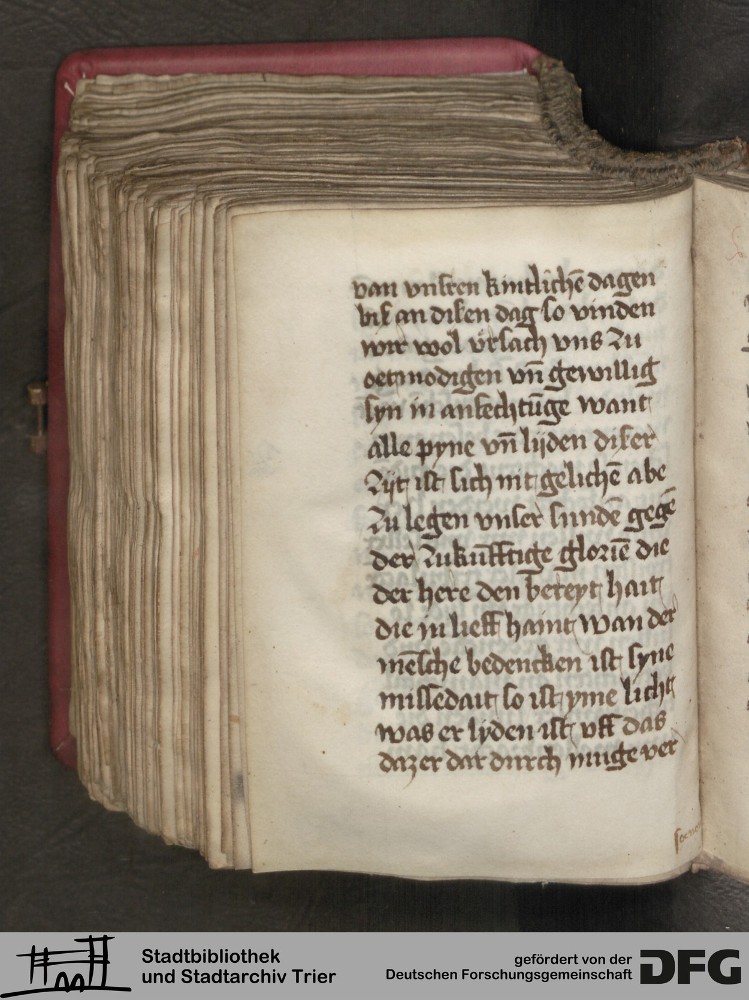 van vnsren kintlichē dagen
bis an disen dag so vinden
wir wol vrsach vns zu
oetmodigen vn̄ gewillig
syn in anfechtūge want
alle pyne vn̄ lijden diser
zijt ist sich nit gelichē abe
zu legen vnser sundē gegē
der zukūfftige glorie die
der here den bereyt hait
die in lieff haint wan der
mēsche bedencken ist syne
missedait so ist yme licht
was er lyden ist vff das
daz er dar durch muge ver
Stadtbibliothek
und Stadtarchiv Trier
gefördert von der
Deutschen Forschungsgemeinschaft
DFG